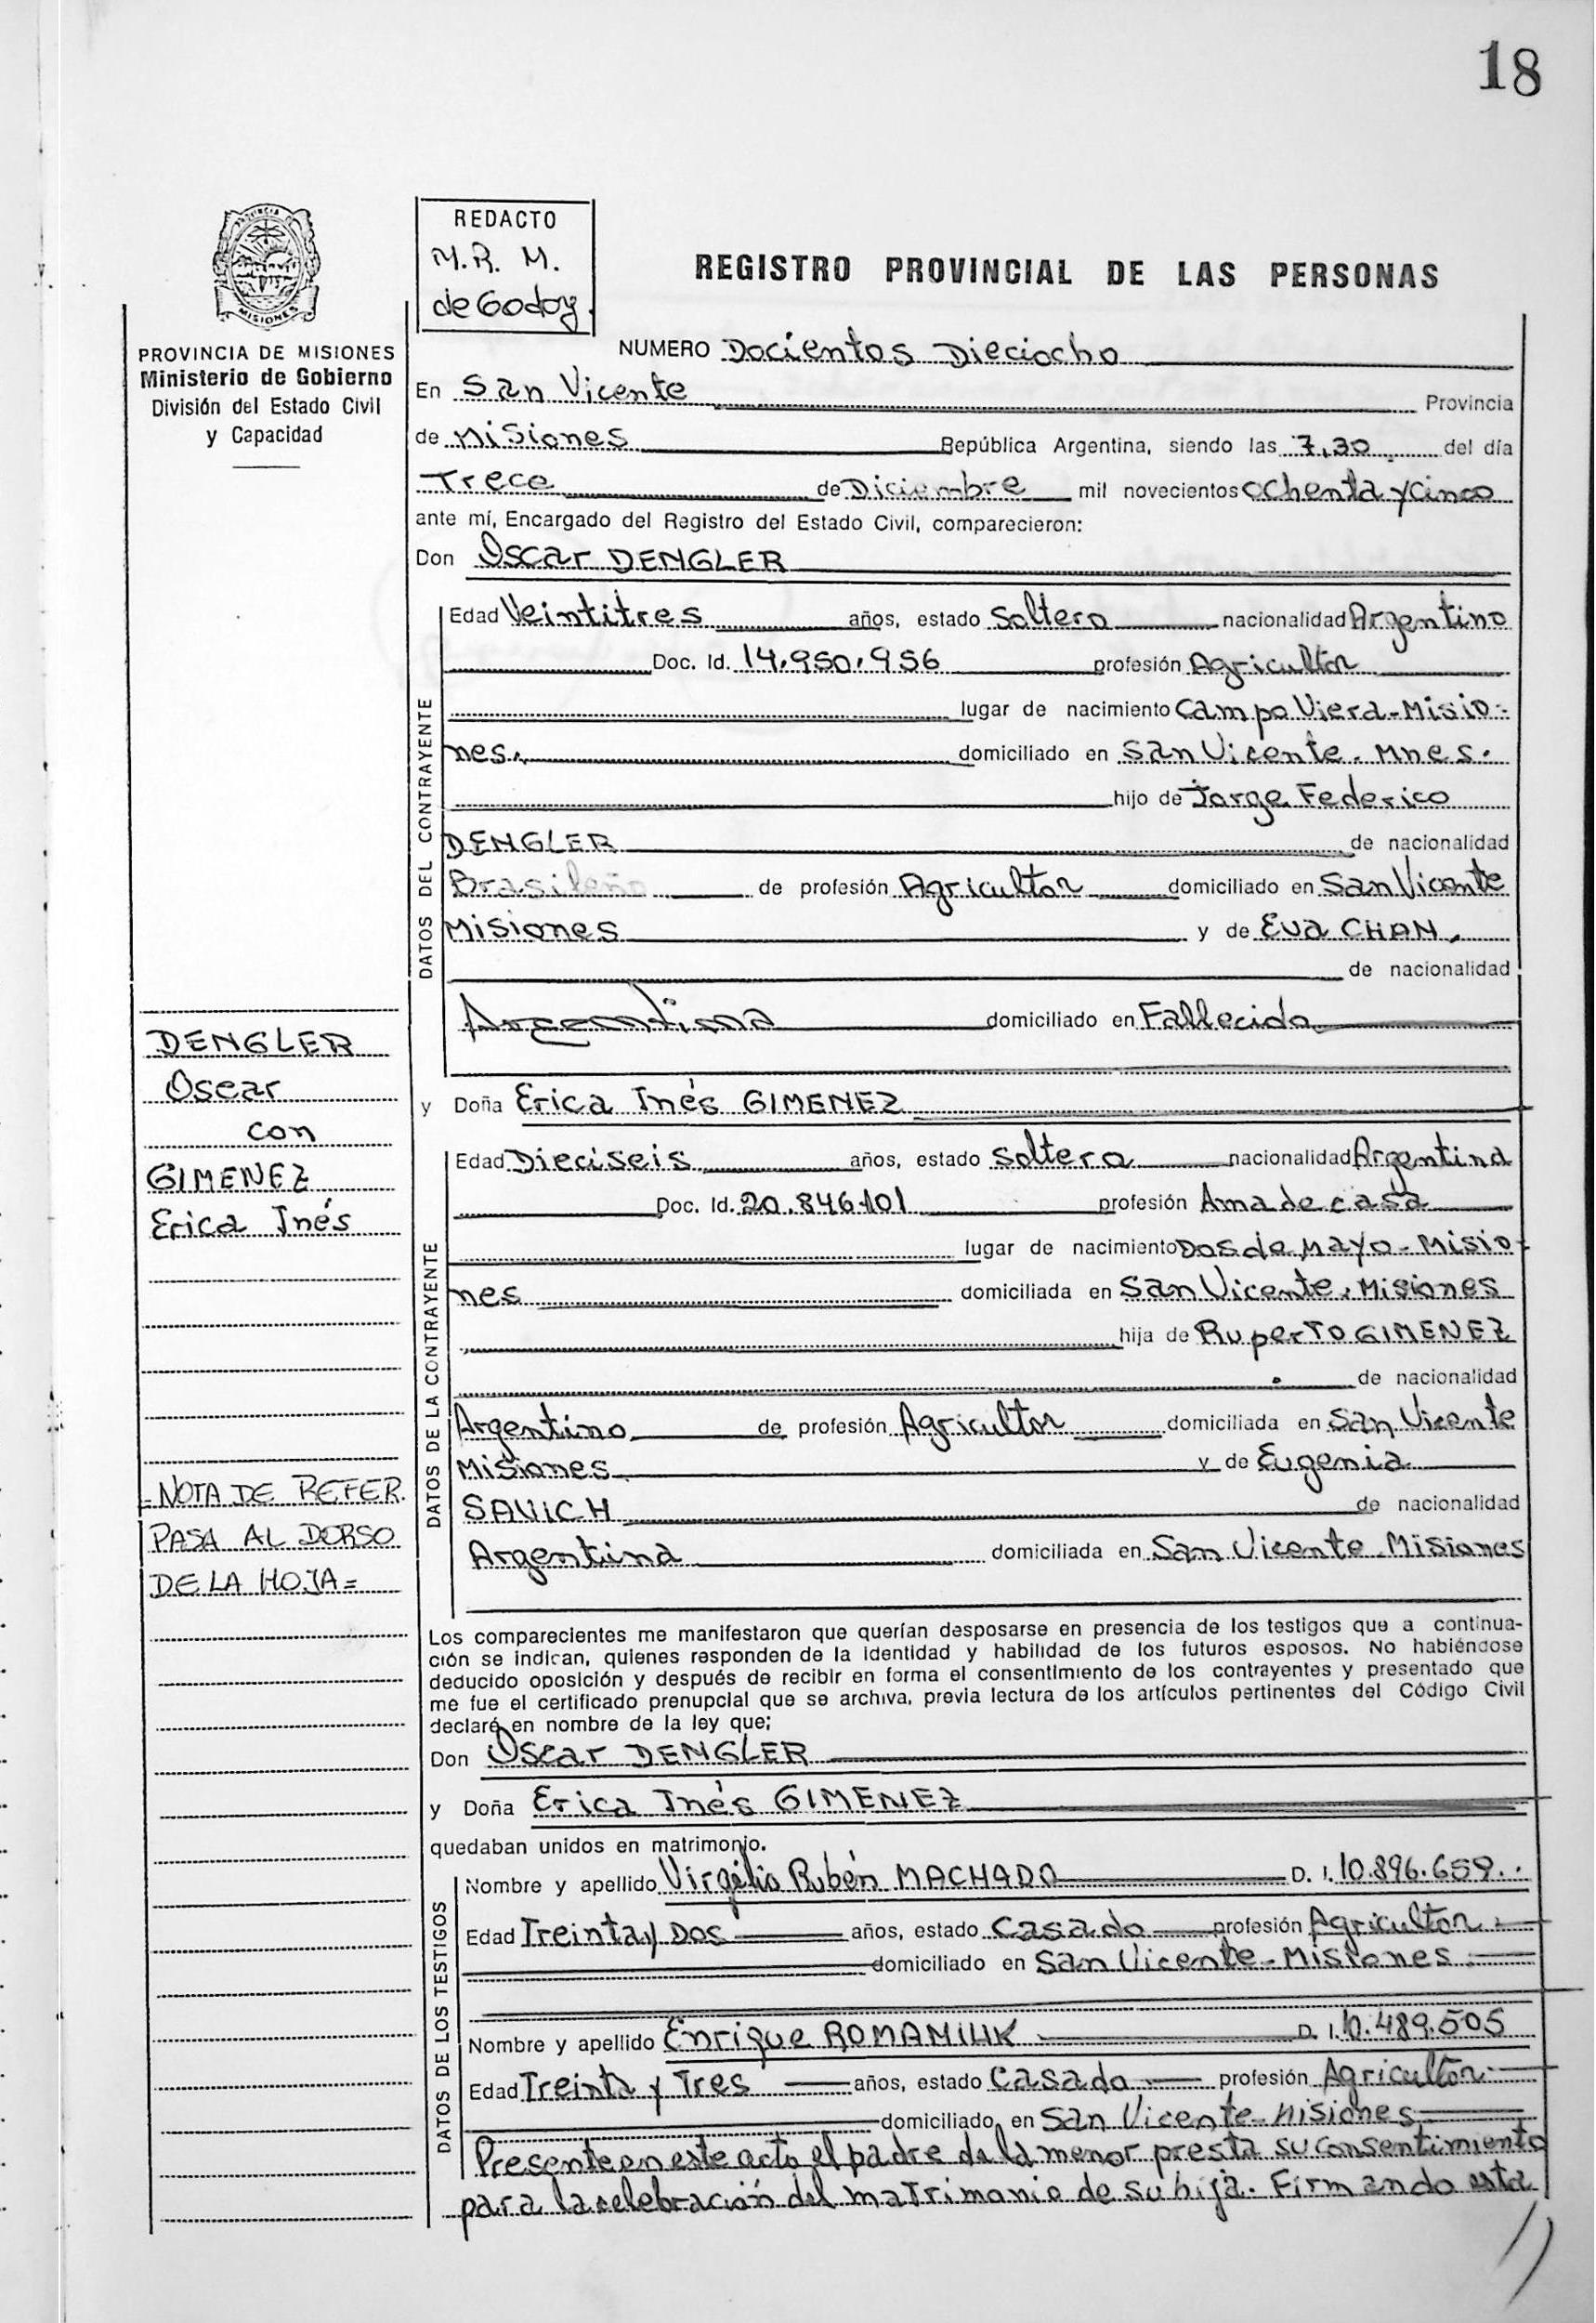 18
PROVINCIA
MISIONES
PROVINCIA DE MISIONES
Ministerio de Gobierno
División del Estado Civil
y Capacidad
REDACTO
M.R. M.
de Godoy.
REGISTRO PROVINCIAL DE LAS PERSONAS
NUMERO Docientos Dieciocho
En San Vicente Provincia
de Misiones República Argentina, siendo las 7,30 del día
Trece de Diciembre mil novecientos ochenta y cinco
ante mí, Encargado del Registro del Estado Civil, comparecieron:
Don Oscar DENGLER
DATOS DEL CONTRAYENTE
Edad Veintitres años, estado Soltero nacionalidad Argentino
Doc. Id. 14.950.956 profesión Agricultor
lugar de nacimiento Campo Viera-Misio-
nes. domiciliado en San Vicente. Mnes.
hijo de Jorge Federico
DENGLER de nacionalidad
Brasileño de profesión Agricultor domiciliado en San Vicente
Misiones y de Eva CHAN.
de nacionalidad
Argentina domiciliado en Fallecida
y Doña Erica Inés GIMENEZ
DATOS DE LA CONTRAYENTE
Edad Dieciseis años, estado Soltera nacionalidad Argentina
Doc. Id. 20.846.101 profesión Ama de casa
lugar de nacimiento Dos de Mayo-Misio-
nes domiciliada en San Vicente. Misiones
hija de Ruperto GIMENEZ
de nacionalidad
Argentino de profesión Agricultor domiciliada en San Vicente
Misiones y de Eugenia
SAVICH de nacionalidad
Argentina domiciliada en San Vicente. Misiones
DENGLER
Oscar
con
GIMENEZ
Erica Inés
=NOTA DE REFER.
PASA AL DORSO
DE LA HOJA=
Los comparecientes me manifestaron que querían desposarse en presencia de los testigos que a continua-
ción se indican, quienes responden de la identidad y habilidad de los futuros esposos. No habiéndose
deducido oposición y después de recibir en forma el consentimiento de los contrayentes y presentado que
me fue el certificado prenupcial que se archiva, previa lectura de los artículos pertinentes del Código Civil
declaré en nombre de la ley que;
Don Oscar DENGLER
y Doña Erica Inés GIMENEZ
quedaban unidos en matrimonio.
DATOS DE LOS TESTIGOS
Nombre y apellido Virgilio Rubén MACHADO D. I. 10.896.659.
Edad Treinta y Dos años, estado Casado profesión Agricultor
domiciliado en San Vicente-Misiones.
Nombre y apellido Enrique ROMANIUK D. I. 10.489.505
Edad Treinta y Tres años, estado Casado profesión Agricultor
domiciliado en San Vicente-Misiones
Presente en este acto el padre de la menor presta su consentimiento
para la celebración del matrimonio de su hija. Firmando esta
//